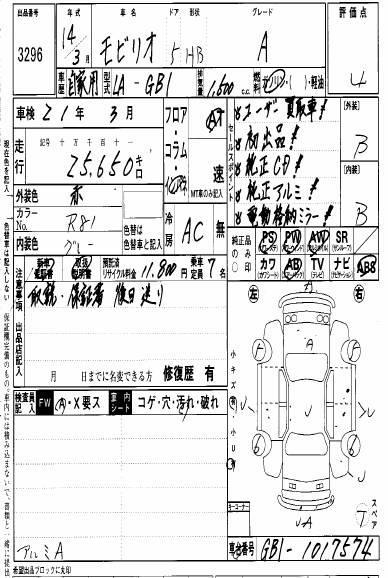 出品番号 年式 車名 ドア 形状 グレード 評価点
3296 14年 3月 モビリオ 5 HB A 4
車歴 自家用 型式 LA-GB1 排気量 1,500 c.c. 燃料 ガソリン・( )・軽油
車検 21年 3月
フロア・コラム・
AT 速
MT車のみ記入
セールスポイント
ユーザー買取車!
初出品!
純正CD!
純正アルミ!
電動格納ミラー!
[外装] B
[内装] B
走行 記号 十万 千 百 十 一
25,650
外装色 赤
カラーNo. R81
内装色 グレー
色替は色替車と記入
冷房 AC 無
純正品のみ○印
PS PW AW SR
(パワステ) (パワーウィンド) (アルミホイール) (サンルーフ)
カワ AB TV ナビ ABS
新車保証書 取扱説明書 預託済リサイクル料金 11,800円 乗車定員 7名
注意事項 出品店記入
取説・保証書 後日送り
月 日までに名変できる方 修復歴 有
検査員記入 FW A・X要ス 車内シート コゲ・穴・汚れ・破れ
アルミA
左 右
小キズ 有
小U 有
A
F F
J
U U
6 6
J
A
スペア 7
コーナー
車台番号 GB1-1017574
希望出品ブロックに丸印
現在色を記入
色替車は記入しない
保証機完備のもの。車内には積み込まないで、書類と一緒に提出